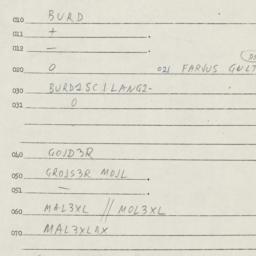 010 BURD
011 +
012 —
020 O 021 FARVUS GULT
030 BURD1SC1LANG2-
031 O
040 GOJD3R
050 GROJS3R MOJL
051 —
060 MAL3XL // MOL3XL
070 MAL3XLAX